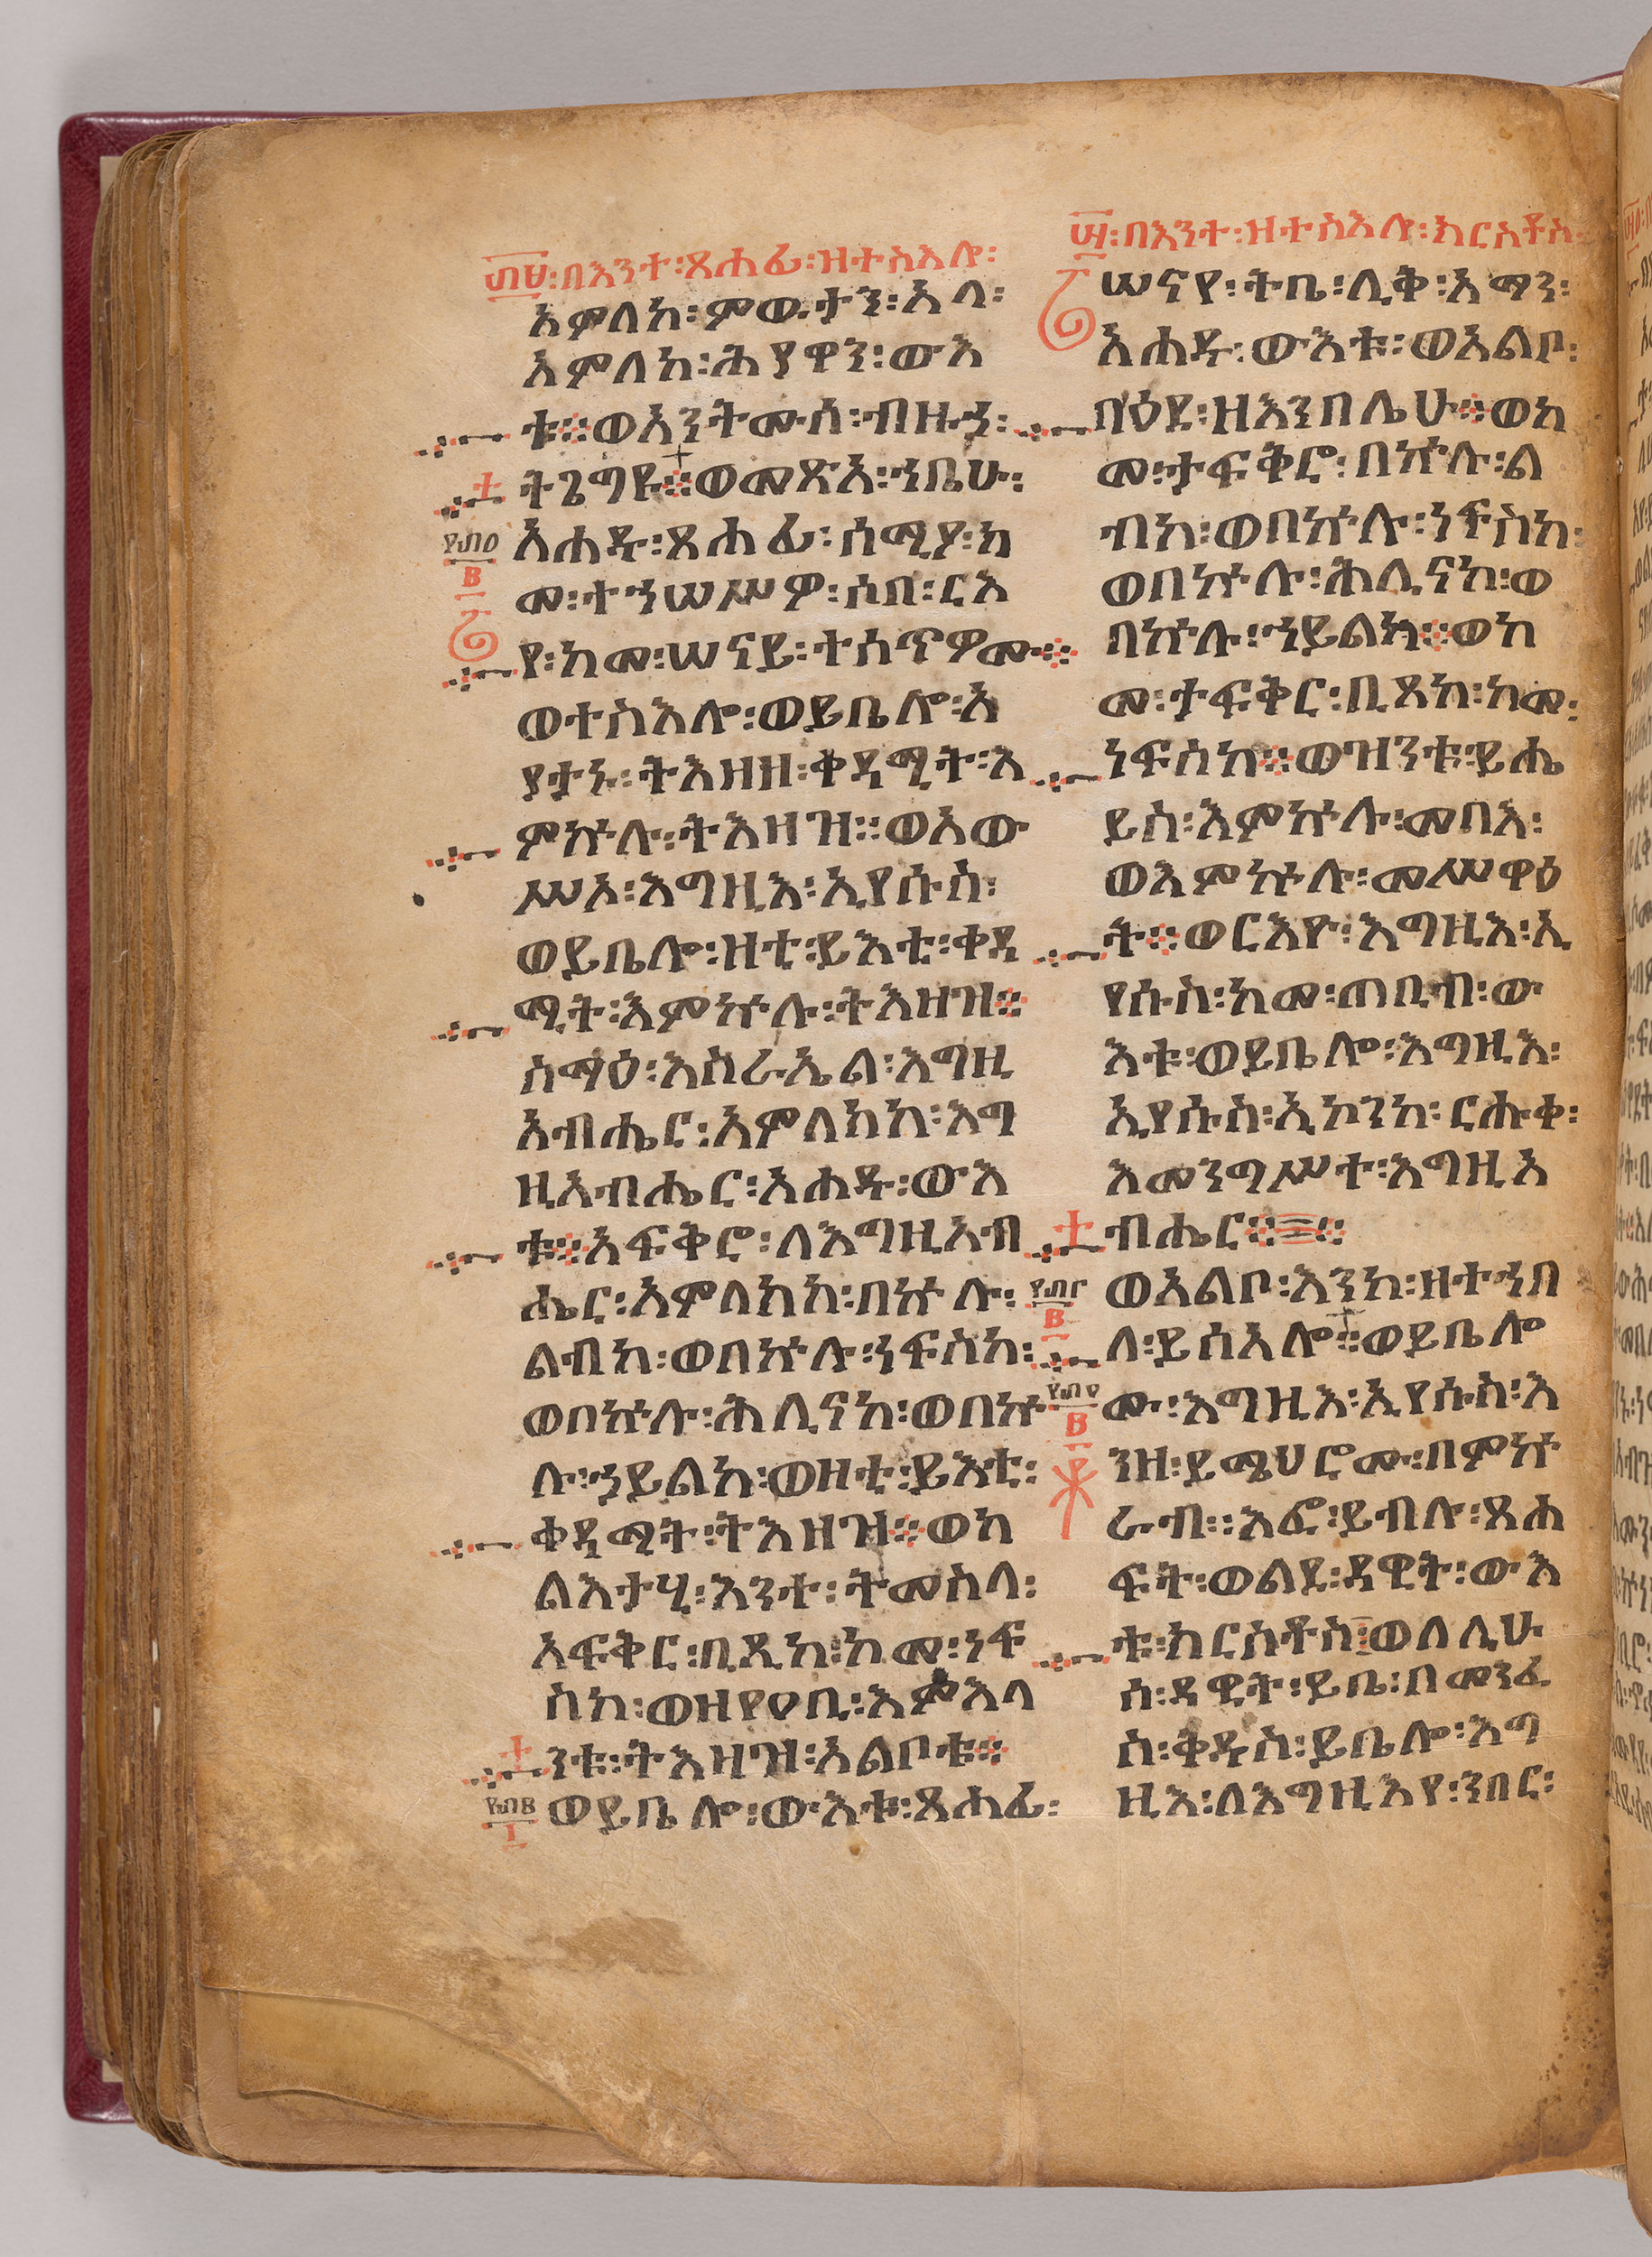 ፴፱፡በእንተ፡ጸሐፊ፡ዘተስእሎ፡
አምላከ፡ምውታን፡አላ፡
አምላከ፡ሕያዋን፡ውእ
ቱ።ወአንትሙሰ፡ብዙኃ፡
ትጌግዩ።ወመጽአ፡ኀቤሁ፡
አሐዱ፡ጸሐፊ፡ሰሚዖ፡ከ
መ፡ተኀሠሥዎ፡ሶበ፡ርእ
የ፡ከመ፡ሠናይ፡ተሰጥዎሙ።
ወተስእሎ፡ወይቤሎ፡አ
ያታኑ፡ትእዘዘ፡ቀዳሚት፡እ
ምኵሉ፡ትእዛዝ።ወአው
ሥአ፡እግዚእ፡ኢየሱስ፡
ወይቤሎ፡ዛቲ፡ይእቲ፡ቀዳ
ሚት፡እምኵሉ፡ትእዘዝ።
ስማዕ፡እስራኤል፡እግዚ
አብሔር፡አምላክከ፡እግ
ዚአብሔር፡አሐዱ፡ውእ
ቱ።አፍቅሮ፡ለእግዚአብ
ሔር፡አምላክከ፡በኵሉ፡
ልብከ፡ወበኵሉ፡ነፍስከ፡
ወበኵሉ፡ሕሊናከ፡ወበኵ
ሉ፡ኃይልከ፡ወዛቲ፡ይእቲ፡
ቀዳሚት፡ትእዘዝ።ወካ
ልእታሂ፡እንተ፡ትመስላ፡
አፍቅር፡ቢጸከ፡ከመ፡ነፍ
ስከ፡ወዘየዐቢ፡እምእላ
ንቱ፡ትእዛዝ፡አልቦቱ።
ወይቤሎ፡ውእቱ፡ጸሐፊ፡
፵፡በእንተ፡ዘተስእሎ፡ክርስቶስ፡
ሠናየ፡ትቤ፡ሊቅ፡አማን፡
አሐዱ፡ውእቱ፡ወአልቦ፡
በዕደ፡ዘእንበሌሁ።ወከ
መ፡ታፍቅሮ፡በኵሉ፡ል
ብከ፡ወበኵሉ፡ነፍስከ፡
ወበኵሉ፡ሕሊናከ፡ወ
በኵሉ፡ኀይልከ።ወከ
መ፡ታፍቅር፡ቢጸከ፡ከመ፡
ነፍስከ።ወዝንቱ፡ይሔ
ይስ፡እምኵሉ፡መባእ፡
ወእምኵሉ፡መሥዋዕ
ት።ወርእዮ፡እግዚእ፡ኢ
የሱስ፡ከመ፡ጠቢብ፡ው
እቱ፡ወይቤሎ፡እግዚእ፡
ኢየሱስ፡ኢኮንከ፡ርሑቀ፡
እመንግሥተ፡እግዚአ
ብሔር።
ወአልቦ፡እንከ፡ዘተኀበ
ለ፡ይሰአሎ።ወይቤሎ
ሙ፡እግዚእ፡ኢየሱስ፡እ
ንዘ፡ይሜህሮሙ፡በምኵ
ራብ።እፎ፡ይብሉ፡ጸሐ
ፍት፡ወልደ፡ዳዊት፡ውእ
ቱ፡ክርስቶስ፡ወለሊሁ
ሰ፡ዳዊት፡ይቤ፡በመንፈ
ስ፡ቅዱስ፡ይቤሎ፡እግ
ዚእ፡ለእግዚእየ፡ንበር፡